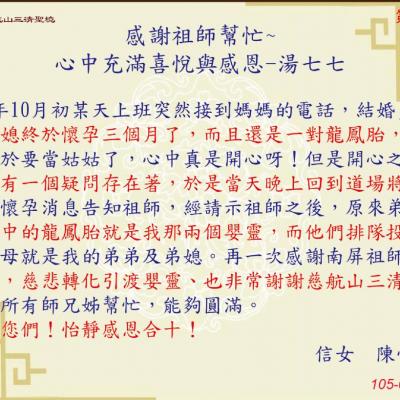 航山三清聖境
感謝祖師幫忙~
心中充滿喜悅與感恩-湯七七
年10月初某天上班突然接到媽媽的電話，結婚
媳終於懷孕三個月了，而且還是一對龍鳳胎，
於要當姑姑了，心中真是開心呀！但是開心之
有一個疑問存在著，於是當天晚上回到道場將
懷孕消息告知祖師，經請示祖師之後，原來弟
中的龍鳳胎就是我那兩個嬰靈，而他們排隊投
母就是我的弟弟及弟媳。再一次感謝南屏祖師
，慈悲轉化引渡嬰靈、也非常謝謝慈航山三清
所有師兄姊幫忙，能夠圓滿。
您們！怡靜感恩合十！
信女　陳
105-